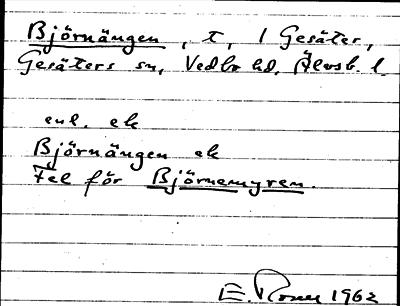 Björnängen, t, 1 Gesäter,
Gesäters sn, Vedbo hd, Älvsb. l.
enl. ek
Björnängen ek
Fel för Björnemyren.
E. Rosen 1962